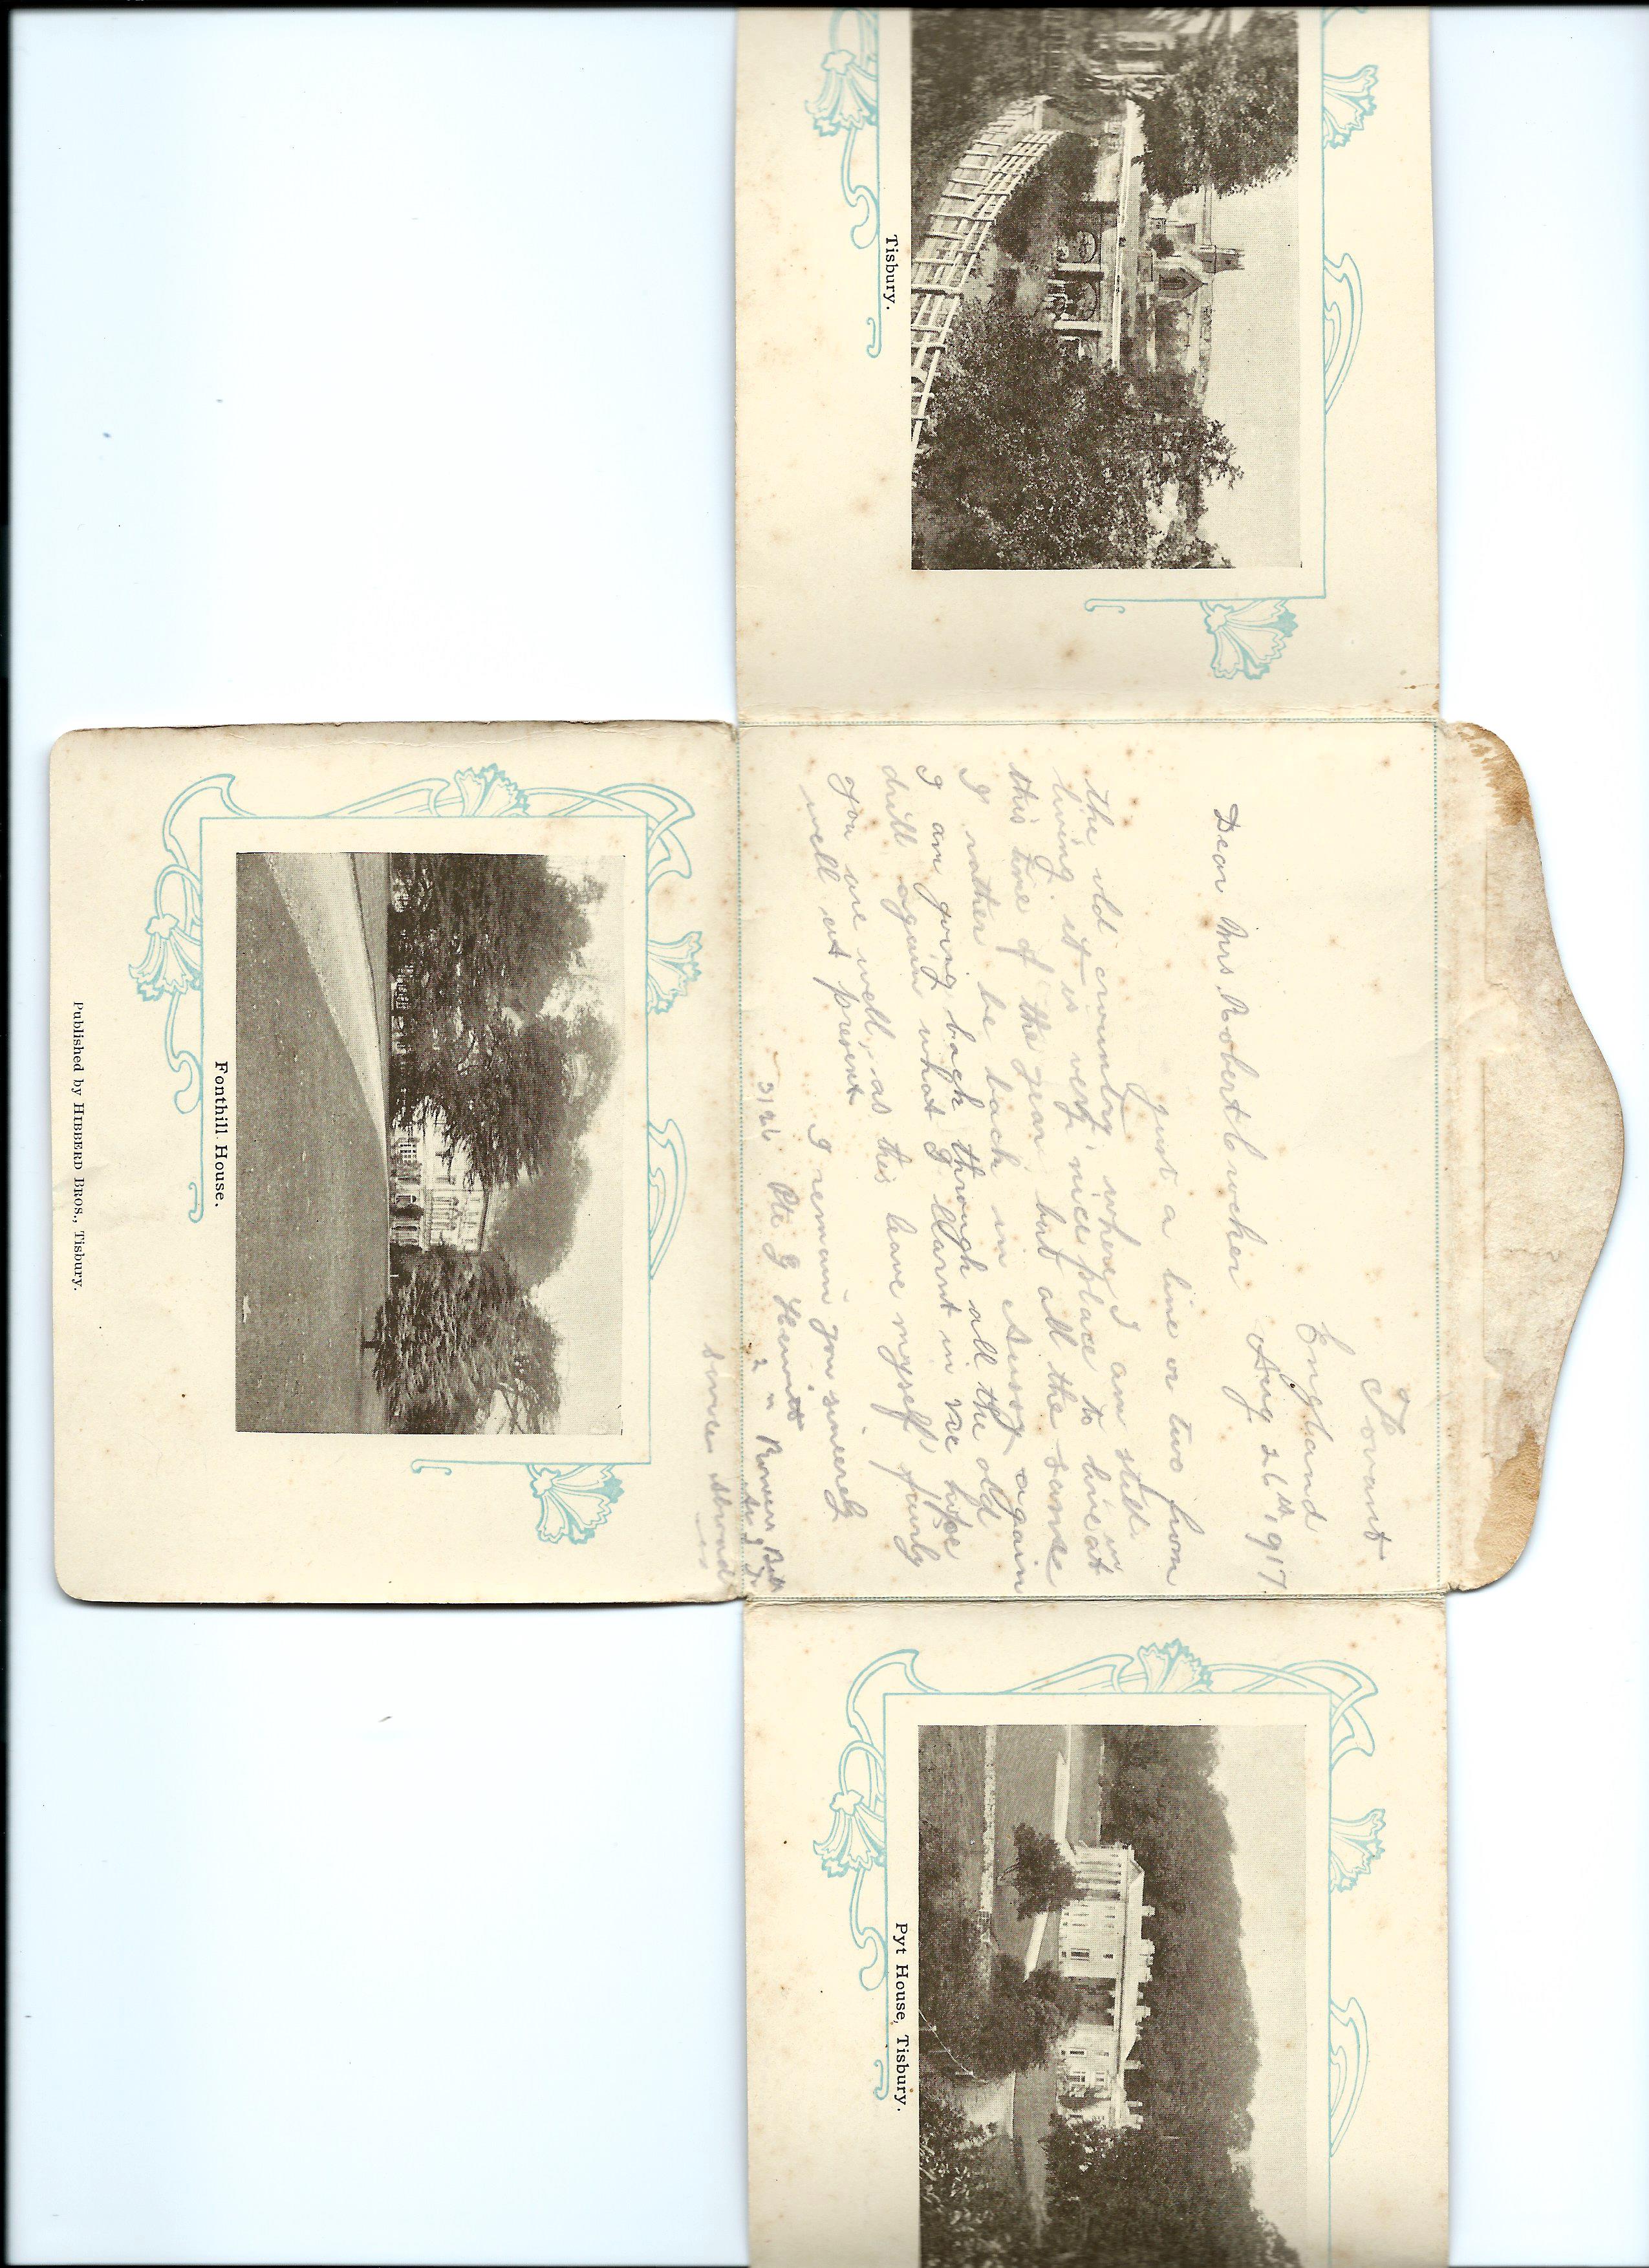 Tisbury.
Fovant
England
Aug. 26th, 917
Dear Mrs
Just a line or two from
the old country where I am still
living it is very nice place to live at
this time of the year, but all the same
I rather be back in Aussy again
I am going back through all the old
drill again what I learnt in Vic hope
you are well, as this leave myself fairly
well at present
I remain yours sincerely
3126 Pte J
2 n Pioneers Batt
A. I. F.
Service Abroad
Fonthill House.
Published by HIBBERD BROS., Tisbury.
Pyt House, Tisbury.